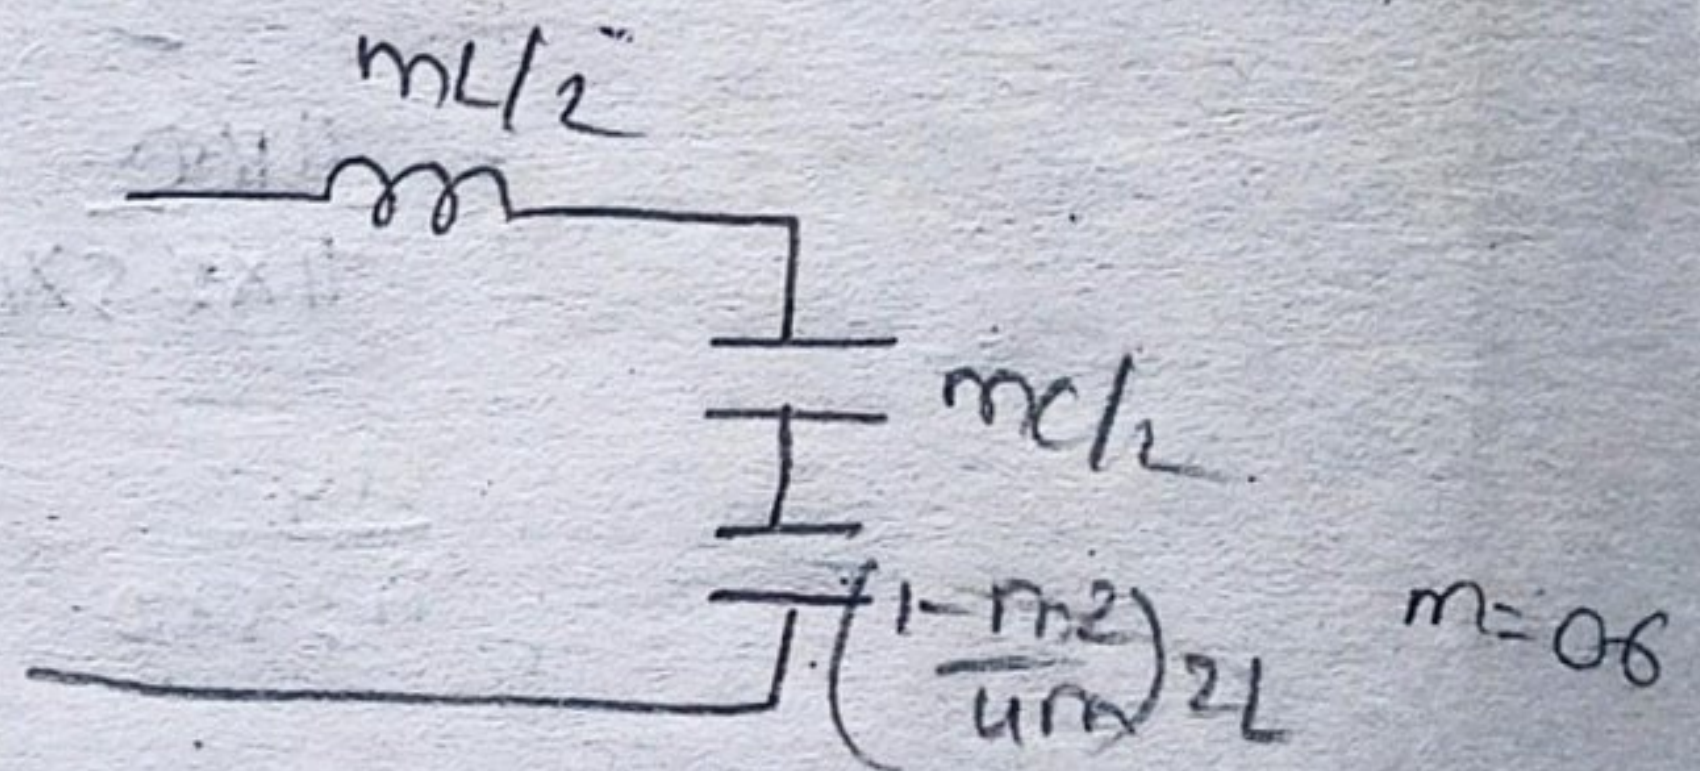 mL/2
mC/2
(1-m2/4m)2L
m=0.6